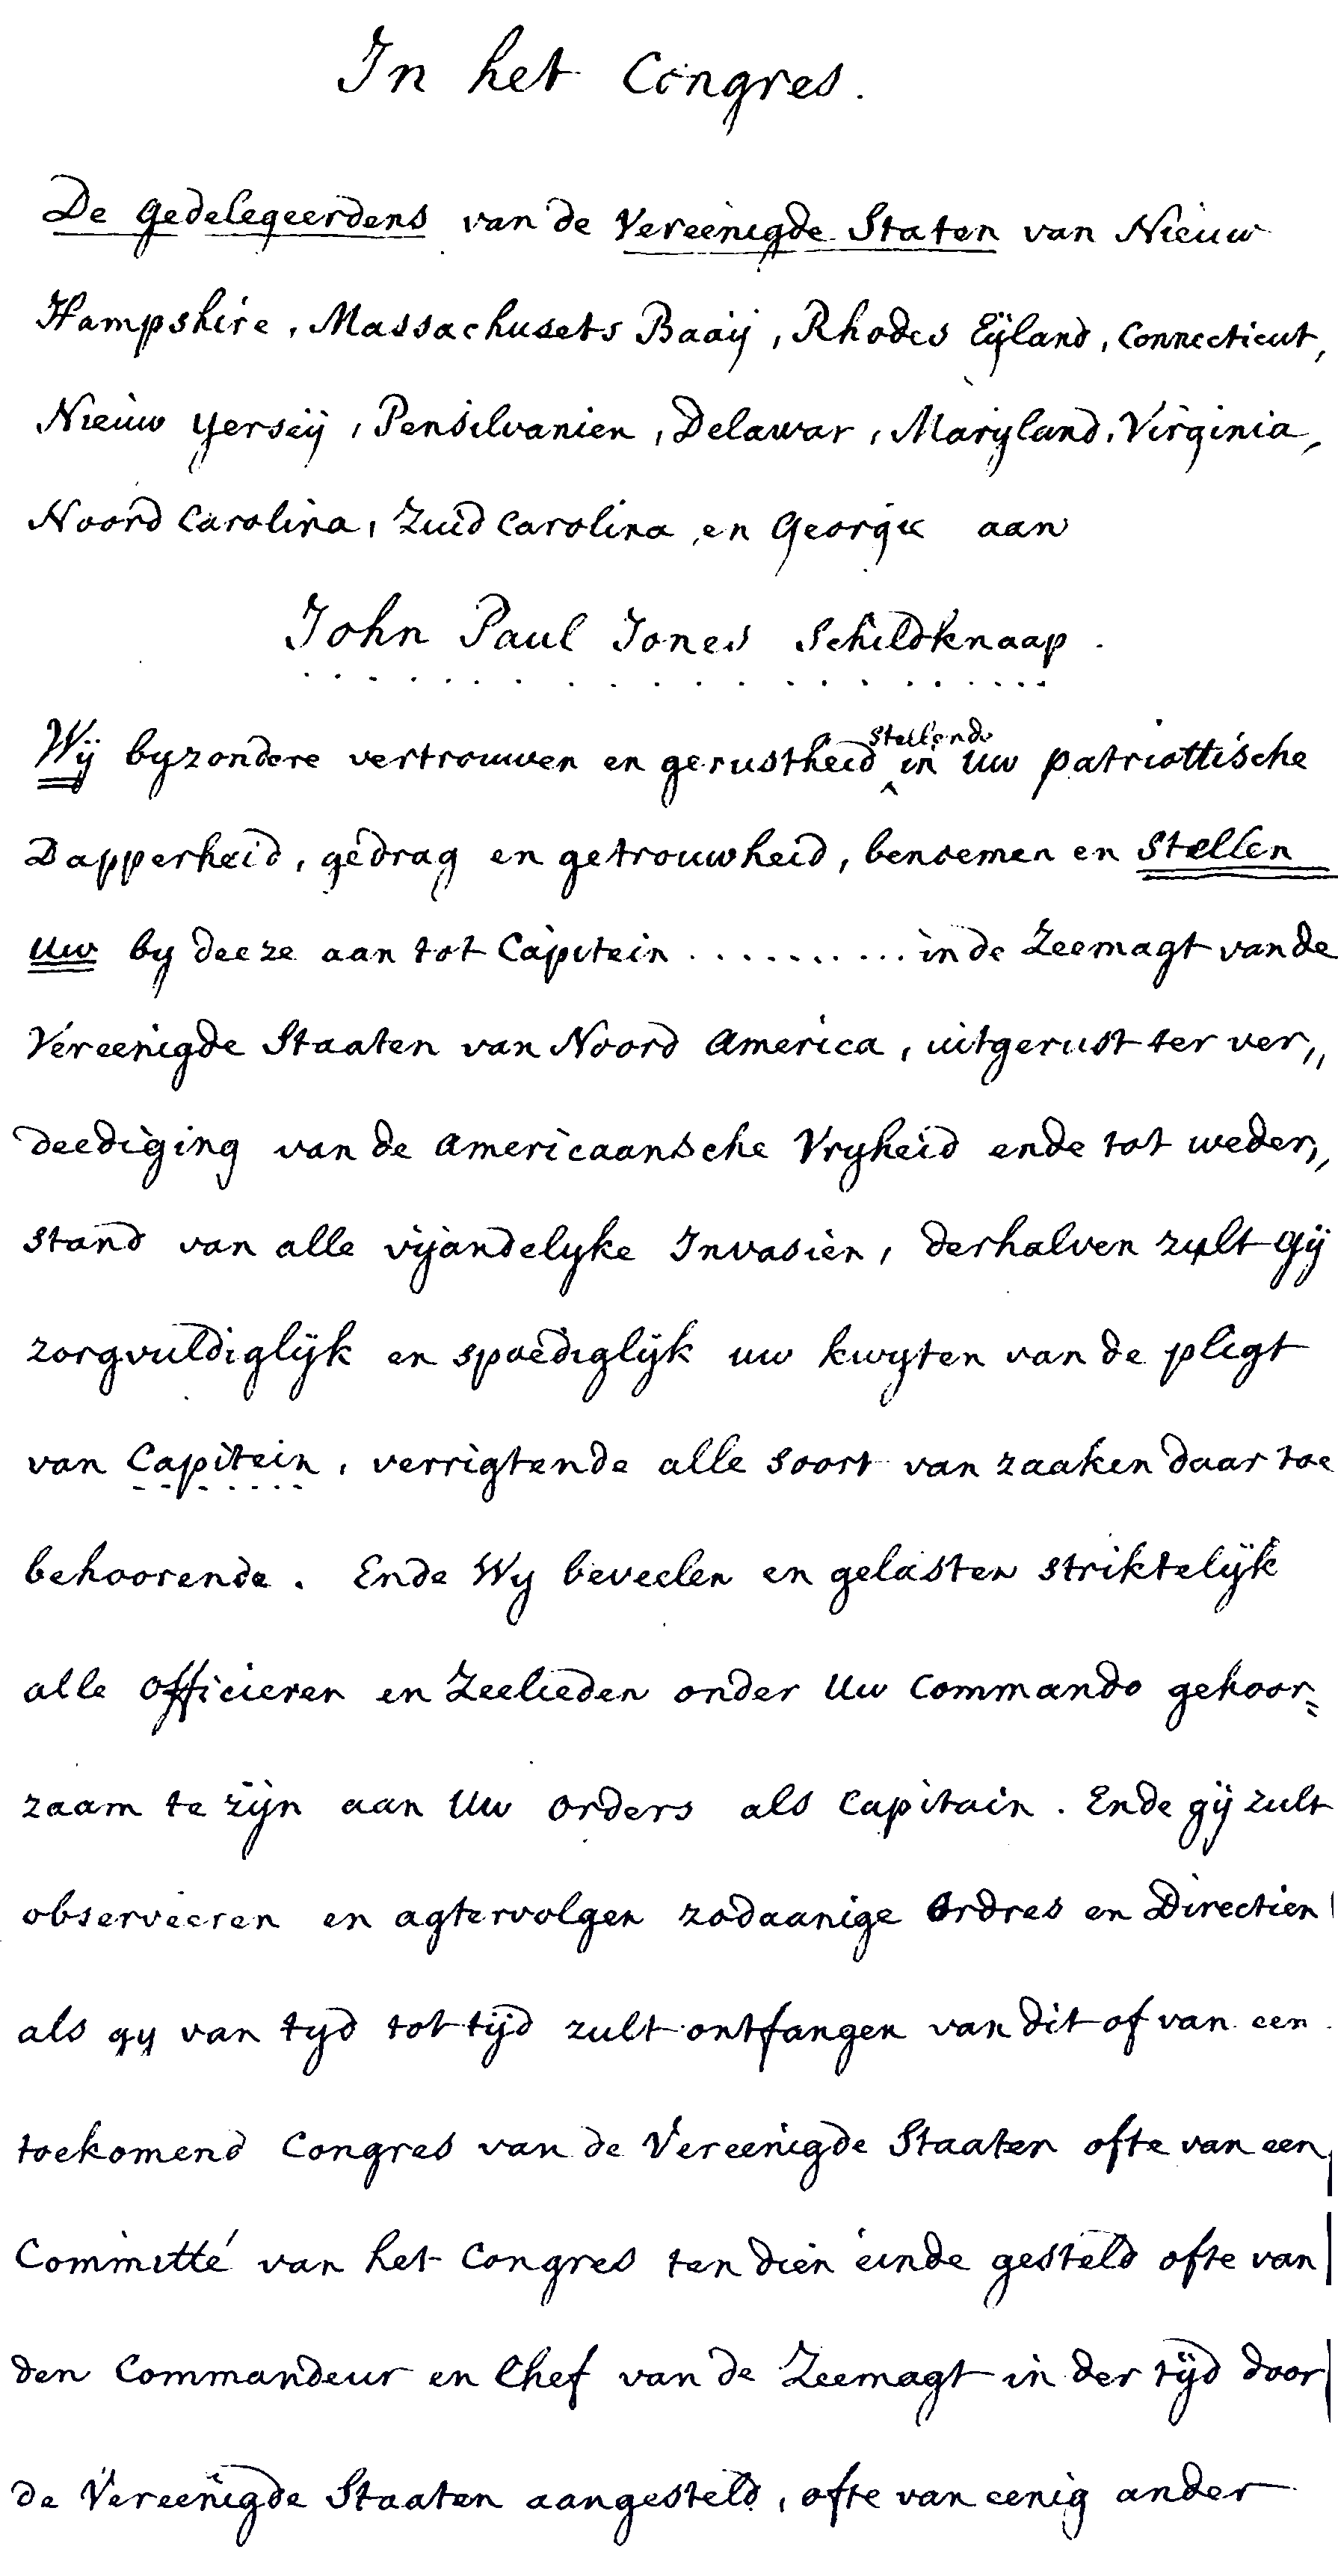 In het Congres.
De Gedelegeerdens van de Vereenigde Staten van Nieuw
Hampshire, Massachusets Baaij, Rhodes Eijland, Connecticut,
Nieuw Yerseij, Pensilvanien, Delawar, Maryland, Virginia,
Noord Carolina, Zuid Carolina, en Georgie aan
John Paul Jones Schildknaap.
Wij byzondere vertrouwen en gerustheid stellende in uw patriottische
Dapperheid, gedrag en getrouwheid, benoemen en Stellen
uw by deeze aan tot Capitein ........... in de Zeemagt van de
Vereenigde Staaten van Noord America, uitgerust ter ver„
deediging van de americaansche Vryheid ende tot weder„
stand van alle vijandelyke Invasien, derhalven zult Gij
zorgvuldiglijk en spoediglijk uw kwyten van de pligt
van Capitein, verrigtende alle soort van zaaken daar toe
behoorende. Ende Wy beveelen en gelasten striktelijk
alle Officieren en Zeelieden onder Uw Commando gehoor=
zaam te zijn aan Uw orders als Capitain. Ende gij zult
observeeren en agtervolgen zodaanige Ordres en Directien
als gy van tyd tot tijd zult ontfangen van dit of van een
toekomend Congres van de Vereenigde Staaten ofte van een
Committé van het Congres ten dien einde gesteld ofte van
den Commandeur en Chef van de Zeemagt in der tijd door
de Vereenigde Staaten aangesteld, ofte van eenig ander